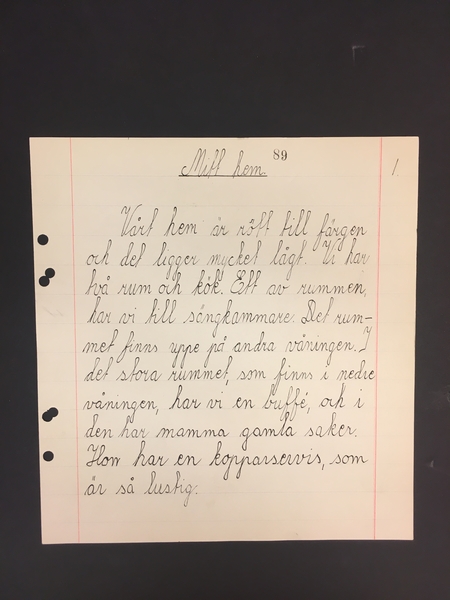 Mitt hem. 89
1
Vårt hem är rött till färgen
och det ligger mycket lågt. Vi har
två rum och kök. Ett av rummen,
har vi till sängkammare. Det rum-
met finns uppe på andra våningen. I
det stora rummet, som finns i nedre
våningen, har vi en buffé, och i
den har mamma gamla saker.
Hon har en kopparservis, som
är så lustig.